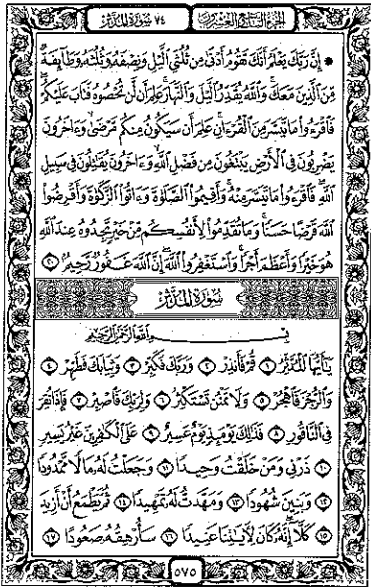 الجزء التاسع والعشرون ٧٤ سورة المدثر
۞ إِنَّ رَبَّكَ يَعْلَمُ أَنَّكَ تَقُومُ أَدْنَىٰ مِن ثُلُثَيِ ٱلَّيْلِ وَنِصْفَهُۥ وَثُلُثَهُۥ وَطَآئِفَةٌ
مِّنَ ٱلَّذِينَ مَعَكَ ۚ وَٱللَّهُ يُقَدِّرُ ٱلَّيْلَ وَٱلنَّهَارَ ۚ عَلِمَ أَن لَّن تُحْصُوهُ فَتَابَ عَلَيْكُمْ ۖ
فَٱقْرَءُوا۟ مَا تَيَسَّرَ مِنَ ٱلْقُرْءَانِ ۚ عَلِمَ أَن سَيَكُونُ مِنكُم مَّرْضَىٰ ۙ وَءَاخَرُونَ
يَضْرِبُونَ فِى ٱلْأَرْضِ يَبْتَغُونَ مِن فَضْلِ ٱللَّهِ ۙ وَءَاخَرُونَ يُقَٰتِلُونَ فِى سَبِيلِ
ٱللَّهِ ۖ فَٱقْرَءُوا۟ مَا تَيَسَّرَ مِنْهُ ۚ وَأَقِيمُوا۟ ٱلصَّلَوٰةَ وَءَاتُوا۟ ٱلزَّكَوٰةَ وَأَقْرِضُوا۟
ٱللَّهَ قَرْضًا حَسَنًا ۚ وَمَا تُقَدِّمُوا۟ لِأَنفُسِكُم مِّنْ خَيْرٍ تَجِدُوهُ عِندَ ٱللَّهِ
هُوَ خَيْرًا وَأَعْظَمَ أَجْرًا ۚ وَٱسْتَغْفِرُوا۟ ٱللَّهَ ۖ إِنَّ ٱللَّهَ غَفُورٌ رَّحِيمٌۢ ٢٠
سورة المدثر
بِسْمِ ٱللَّهِ ٱلرَّحْمَٰنِ ٱلرَّحِيمِ
يَٰٓأَيُّهَا ٱلْمُدَّثِّرُ ١ قُمْ فَأَنذِرْ ٢ وَرَبَّكَ فَكَبِّرْ ٣ وَثِيَابَكَ فَطَهِّرْ ٤
وَٱلرُّجْزَ فَٱهْجُرْ ٥ وَلَا تَمْنُن تَسْتَكْثِرُ ٦ وَلِرَبِّكَ فَٱصْبِرْ ٧ فَإِذَا نُقِرَ
فِى ٱلنَّاقُورِ ٨ فَذَٰلِكَ يَوْمَئِذٍ يَوْمٌ عَسِيرٌ ٩ عَلَى ٱلْكَٰفِرِينَ غَيْرُ يَسِيرٍ
١٠ ذَرْنِى وَمَنْ خَلَقْتُ وَحِيدًا ١١ وَجَعَلْتُ لَهُۥ مَالًا مَّمْدُودًا
١٢ وَبَنِينَ شُهُودًا ١٣ وَمَهَّدتُّ لَهُۥ تَمْهِيدًا ١٤ ثُمَّ يَطْمَعُ أَنْ أَزِيدَ
١٥ كَلَّآ ۖ إِنَّهُۥ كَانَ لِءَايَٰتِنَا عَنِيدًا ١٦ سَأُرْهِقُهُۥ صَعُودًا ١٧
٥٧٥